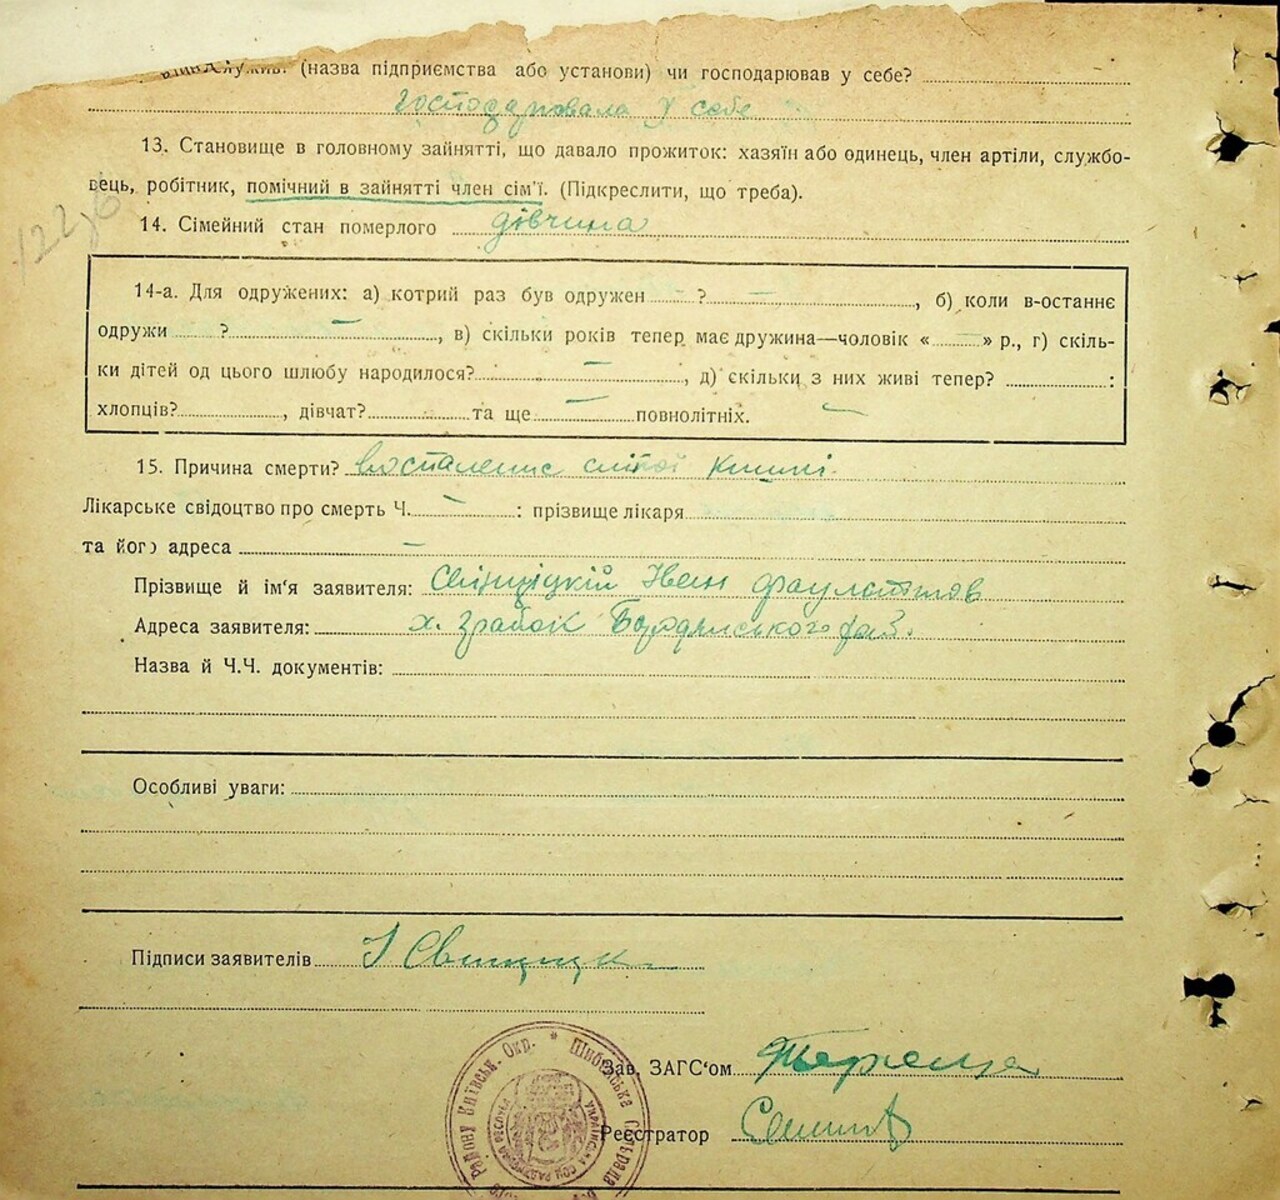 (назва підприємства або установи) чи господарював у себе?
господарювала у себе
13. Становище в головному зайнятті, що давало прожиток: хазяїн або одинець, член артіли, службо-
вець, робітник, помічний в зайнятті член сім'ї. (Підкреслити, що треба).
14. Сімейний стан померлого дівчина
14-а. Для одружених: а) котрий раз був одружен ? — , б) коли в-останнє
одружи ? — , в) скільки років тепер має дружина—чоловік « — » р., г) скіль-
ки дітей од цього шлюбу народилося? — , д) скільки з них живі тепер? :
хлопців? , дівчат? та ще — повнолітніх. —
15. Причина смерти? воспаление сліпої кишки.
Лікарське свідоцтво про смерть Ч. — : прізвище лікаря
та його адреса —
Прізвище й ім'я заявителя: Іван
Адреса заявителя: х. Бородянського рай.
Назва й Ч.Ч. документів:
Особливі уваги:
Підписи заявителів І
Зав. ЗАГС'ом
Реєстратор
району Київськ. Окр. * Шибенська Сільрада
УКРАЇНСЬКА СОЦ. РАДЯНСЬКА